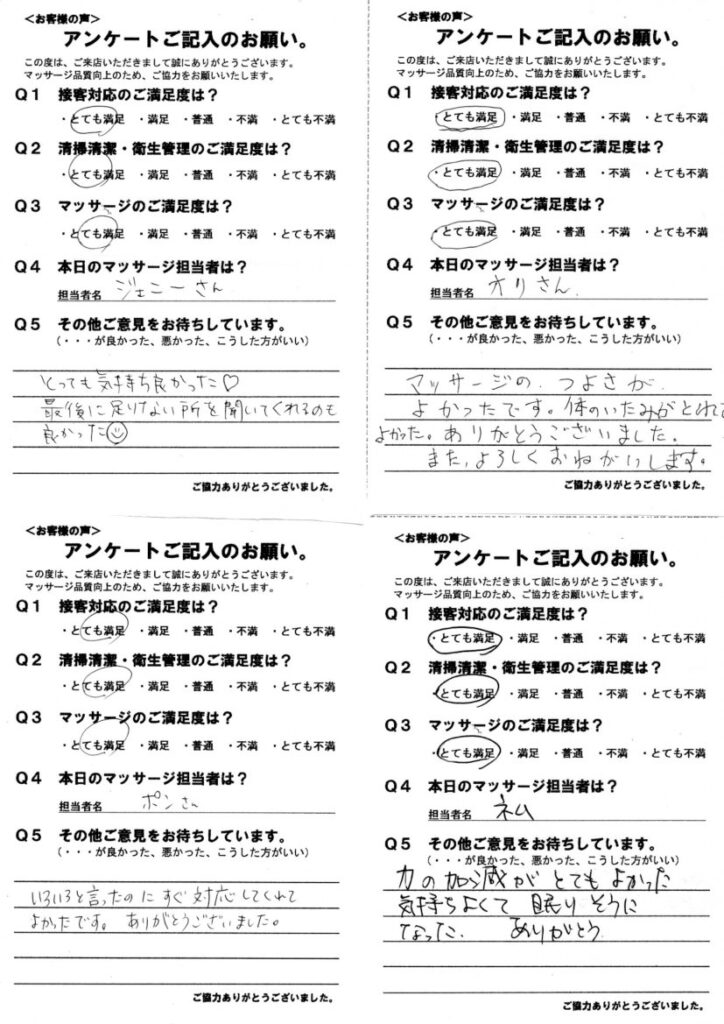 ＜お客様の声＞
アンケートご記入のお願い。
この度は、ご来店いただきまして誠にありがとうございます。
マッサージ品質向上のため、ご協力をお願いいたします。
Ｑ１　接客対応のご満足度は？
・とても満足　・満足　・普通　・不満　・とても不満
Ｑ２　清掃清潔・衛生管理のご満足度は？
・とても満足　・満足　・普通　・不満　・とても不満
Ｑ３　マッサージのご満足度は？
・とても満足　・満足　・普通　・不満　・とても不満
Ｑ４　本日のマッサージ担当者は？
担当者名　ジェニーさん
Ｑ５　その他ご意見をお待ちしています。
（・・・が良かった、悪かった、こうした方がいい）
とっても気持ち良かった♡
最後に足りない所を聞いてくれるのも
良かった☺
ご協力ありがとうございました。
＜お客様の声＞
アンケートご記入のお願い。
この度は、ご来店いただきまして誠にありがとうございます。
マッサージ品質向上のため、ご協力をお願いいたします。
Ｑ１　接客対応のご満足度は？
・とても満足　・満足　・普通　・不満　・とても不満
Ｑ２　清掃清潔・衛生管理のご満足度は？
・とても満足　・満足　・普通　・不満　・とても不満
Ｑ３　マッサージのご満足度は？
・とても満足　・満足　・普通　・不満　・とても不満
Ｑ４　本日のマッサージ担当者は？
担当者名　オリさん
Ｑ５　その他ご意見をお待ちしています。
（・・・が良かった、悪かった、こうした方がいい）
マッサージの、つよさが、
よかったです。体のいたみがとれて
よかった。ありがとうございました。
また、よろしくおねがいします。
ご協力ありがとうございました。
＜お客様の声＞
アンケートご記入のお願い。
この度は、ご来店いただきまして誠にありがとうございます。
マッサージ品質向上のため、ご協力をお願いいたします。
Ｑ１　接客対応のご満足度は？
・とても満足　・満足　・普通　・不満　・とても不満
Ｑ２　清掃清潔・衛生管理のご満足度は？
・とても満足　・満足　・普通　・不満　・とても不満
Ｑ３　マッサージのご満足度は？
・とても満足　・満足　・普通　・不満　・とても不満
Ｑ４　本日のマッサージ担当者は？
担当者名　ポンさん
Ｑ５　その他ご意見をお待ちしています。
（・・・が良かった、悪かった、こうした方がいい）
いろいろと言ったのにすぐ対応してくれて
よかったです。ありがとうございました。
ご協力ありがとうございました。
＜お客様の声＞
アンケートご記入のお願い。
この度は、ご来店いただきまして誠にありがとうございます。
マッサージ品質向上のため、ご協力をお願いいたします。
Ｑ１　接客対応のご満足度は？
・とても満足　・満足　・普通　・不満　・とても不満
Ｑ２　清掃清潔・衛生管理のご満足度は？
・とても満足　・満足　・普通　・不満　・とても不満
Ｑ３　マッサージのご満足度は？
・とても満足　・満足　・普通　・不満　・とても不満
Ｑ４　本日のマッサージ担当者は？
担当者名　ネム
Ｑ５　その他ご意見をお待ちしています。
（・・・が良かった、悪かった、こうした方がいい）
力の加減がとてもよかった
気持ちよくて眠りそうに
なった。ありがとう
ご協力ありがとうございました。